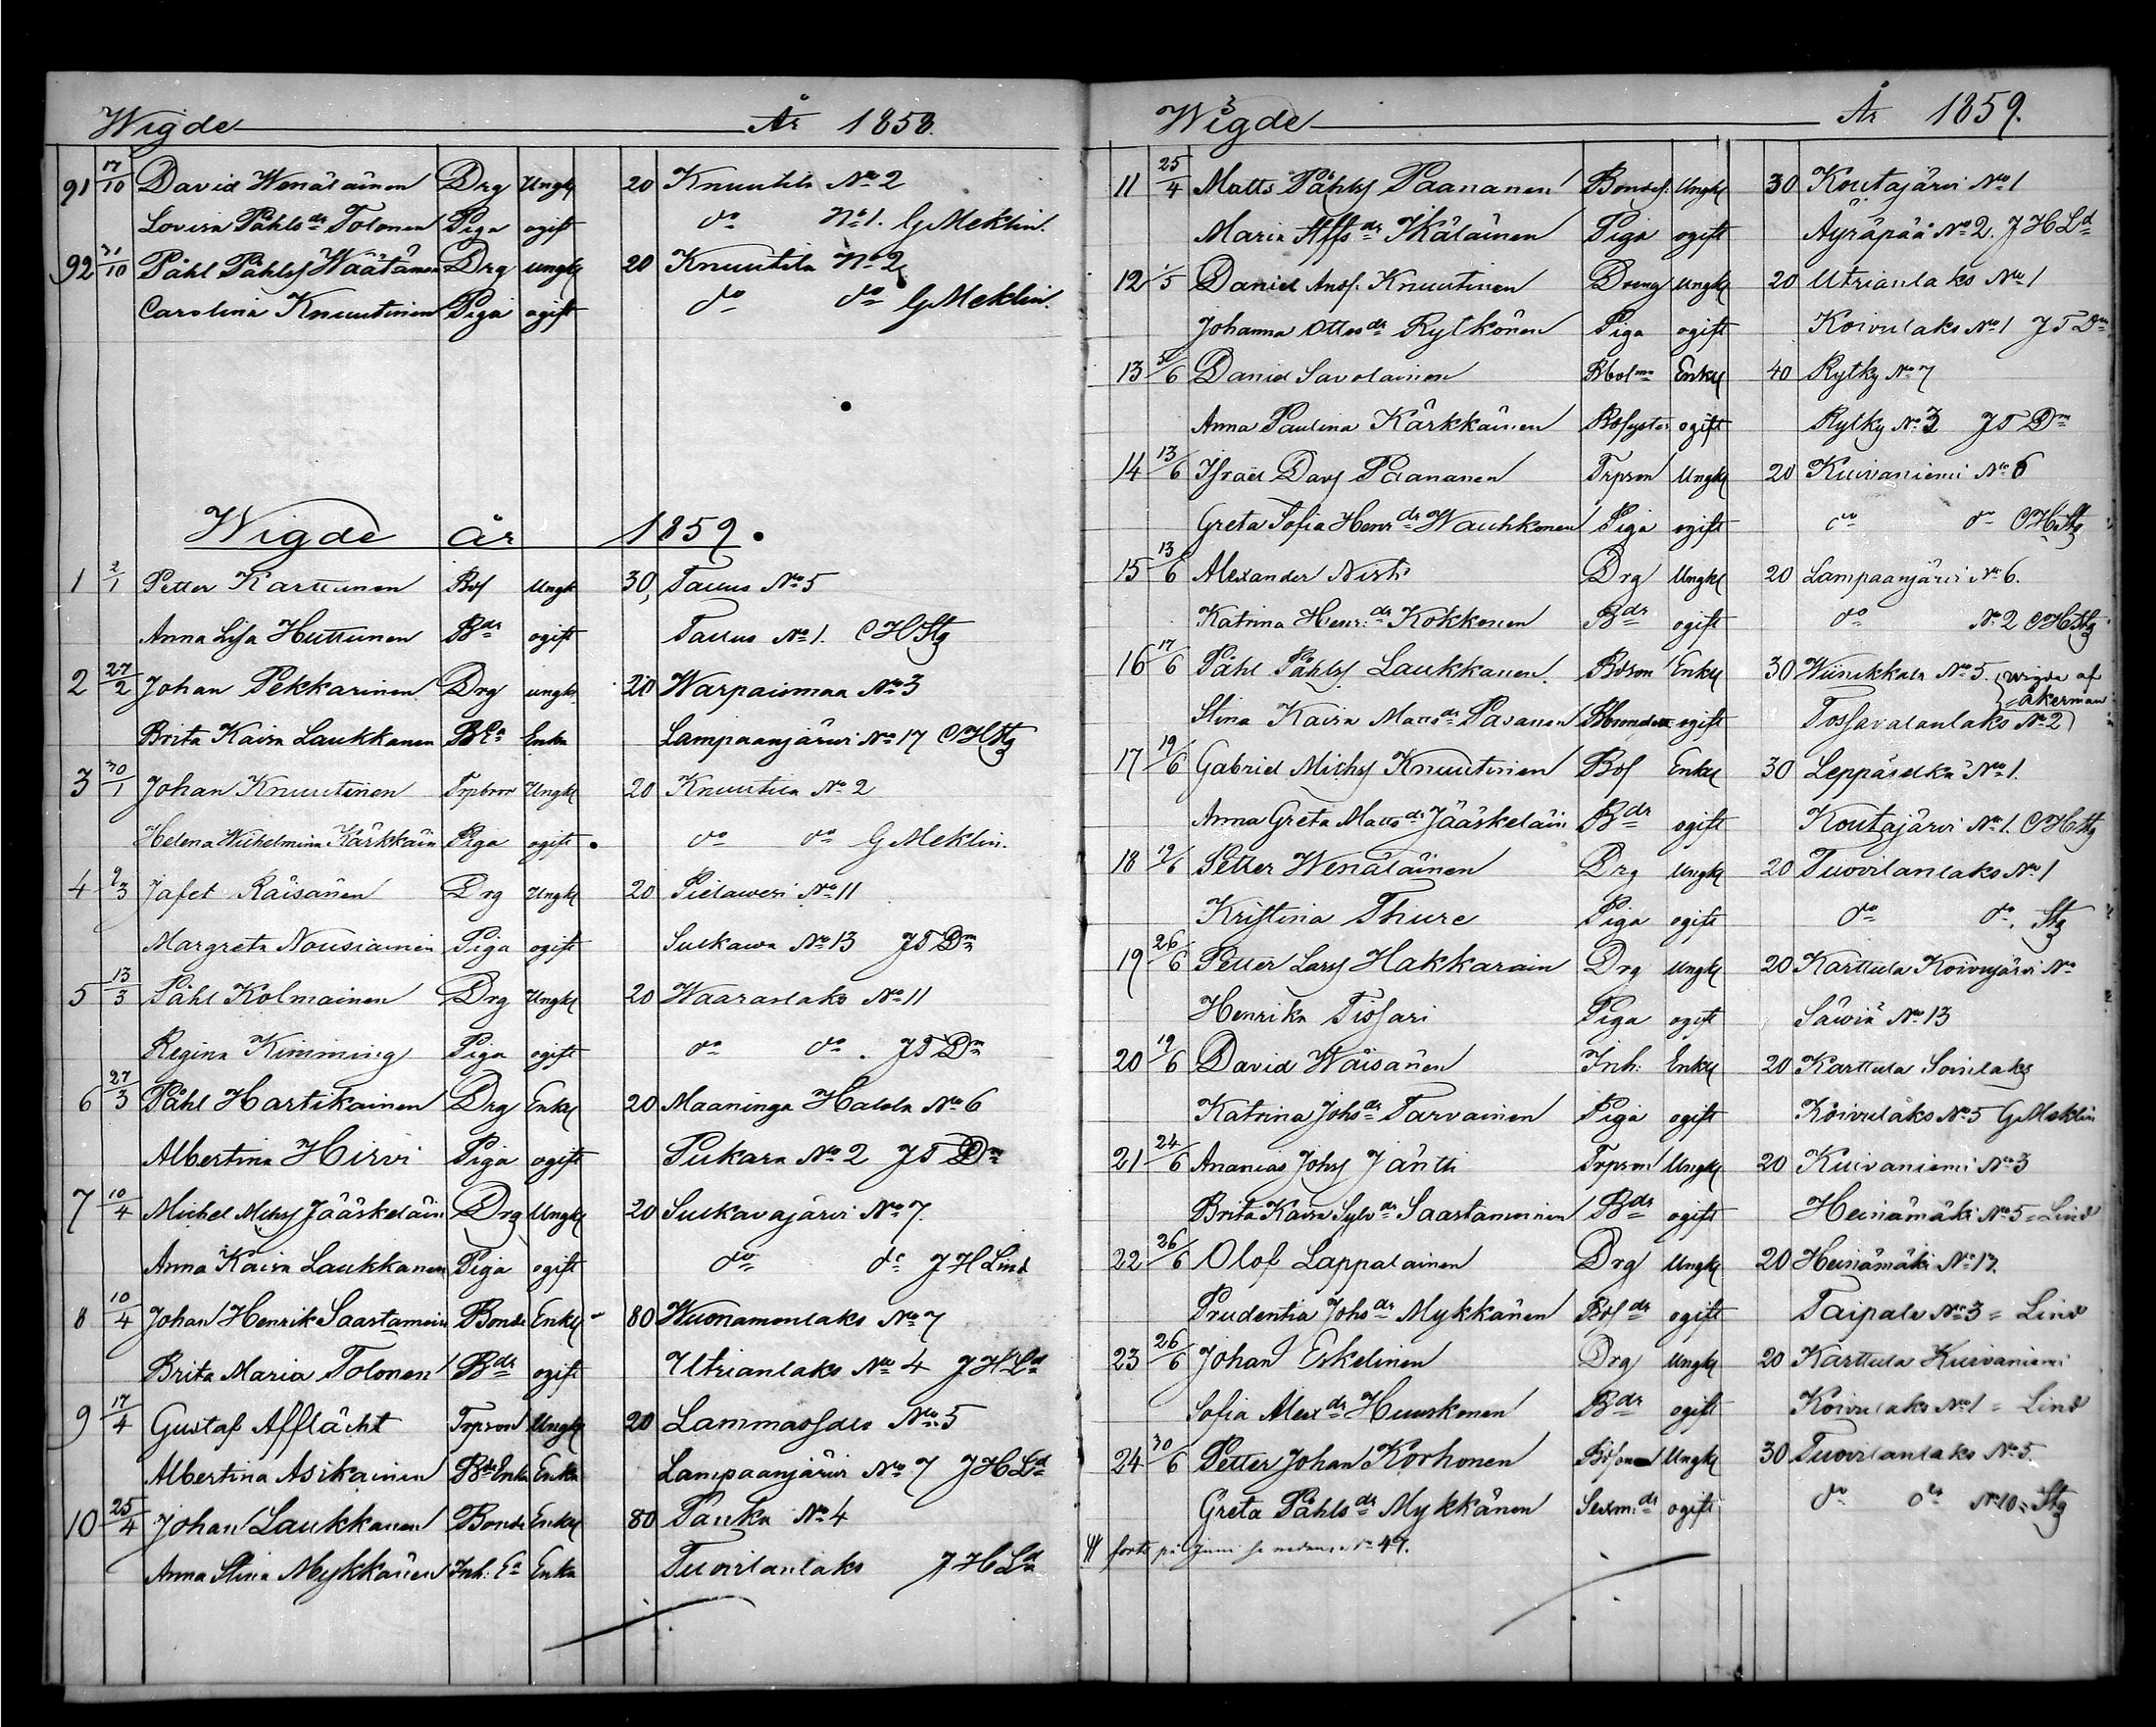 Wigde År 1858.
91 17/10 David Wenäläinen Drg Ungk 20 Knuutila No 2
Lovisa Påhlsdr Tolonen Piga ogift do No 1. G Meklin.
92 31/10 Påhl Påhls Wäätäinen Drg ungk 20 Knuutila No 2
Carolina Knuutinen Piga ogift do do G Meklin.
Wigde År 1859.
1 2/1 Petter Karttunen Bds Ungk 30 Taurus No 5
Anna Lisa Huttunen Bdr ogift Taurus No 1. CHStg
2 27/2 Johan Pekkarinen Drg ungk 20 Warpaismaa No 3
Brita Kaisa Laukkanen Enka Lampaanjärwi No 17 CHStg
3 30/1 Johan Knuutinen Trpbror Ungk 20 Knuutila No 2
Helena Wilhelmina Kärkkäin Piga ogift do do G Meklin.
4 9/3 Jafet Räisänen Drg Ungk 20 Pielawesi No 11
Margreta Nousiainen Piga ogift Sulkawa No 13 JTDm
5 13/3 Påhl Kolmainen Drg Ungk 20 Waaraslaks No 11
Regina Kimming Piga ogift do do. JTDm
6 27/3 Påhl Hartikainen Drg Enkl 20 Maaninga Halola No 6
Albertina Hirvi Piga ogift Pukara No 2 JTDm
7 10/4 Michel Michs Jääskeläin Drg Ungk 20 Sulkavajärvi No 7.
Anna Kaisa Laukkanen Piga ogift do do JHLind
8 10/4 Johan Henrik Saastamoin Bonde Enkl 80 Wuonamonlaks No 7
Brita Maria Tolonen Bdr ogift Utrianlaks No 4 JHLd
9 17/4 Gustaf Afflächt Trpson Ungk 20 Lammassalo No 5
Albertina Asikainen Bde Enka Enka Lampaanjärwi No 7 JHLd
10 25/4 Johan Laukkanen Bonde Enkl 80 Panka No 4
Anna Stina Mykkänen Inh. Ea Enka Tuovilanlaks JHLd
3
Wigde År 1859.
11 25/4 Matts Påhls Paananen Bondes. Ungk 30 Koutajärvi No 1
Maria Staffsdr Ikäläinen Piga ogift Äyräpää No 2. JHLd
12 1/5 Daniel Ands. Knuutinen Dreng Ungk 20 Utrianlaks No 1
Johanna Ottosdr Rytkönen Piga ogift Koivulaks No 1 JTDm
13 5/6 Daniel Savolainen Enkl 40 Rytky No 7
Anna Paulina Kärkkäinen Bdsyster ogift Rytky No 3 JTDm
14 13/6 Israel Davs Paananen Trpson Ungk 20 Kuivaniemi No 6
Greta Sofia Henrdr Wauhkonen Piga ogift do do CHStg
15 13/6 Alexander Nisti Drg Ungk 20 Lampaanjärvi No 6.
Katrina Henr.dr Kokkonen Bdr ogift do No 2 CHStg
16 17/6 Påhl Påhls Laukkanen. Bdson Enkl 30 Wiinikkala No 5. wigda af
Åkerman
Stina Kaisa Mattsdr Pasanen ogift Tossavalanlaks No 2
17 19/6 Gabriel Michs Knuutinen Bds Enkl 30 Leppäselkä No 1.
Anna Greta Mattsdr Jääskeläin Bdr ogift Koutajärvi No 1. CHStg
18 19/6 Petter Wenäläinen Drg Ungk 20 Tuovilanlaks No 1
Kristina Thure Piga ogift do do. Stg
19 26/6 Petter Lars Hakkarain Drg Ungk 20 Karttula Koivujärvi No
Henrika Tissari Piga ogift Säwiä No 13
20 19/6 David Wäisänen Inh. Enkl 20 Karttula Soinlaks
Katrina Johsdr Tarvainen Piga ogift Koivulaks No 5 G Meklin
21 24/6 Ananias Johs Jäntti Trpson Ungk 20 Kuivaniemi No 3
Brita Kaisa Sylvdr Saastamoinen Bdr ogift Heinämäki No 5 = Lind
22 26/6 Olof Lappalainen Drg Ungk 20 Heinämäki No 13.
Prudentia Johsdr Mykkänen Bdsdr ogift Taipale No 3 = Lind
23 26/6 Johan Eskelinen Drg Ungk 20 Karttula Kuivaniemi
Sofia Alexdr Huuskonen Bdr ogift Koivulaks No 1 = Lind
24 30/6 Petter Johan Korhonen Bdsson Ungk 30 Tuovilanlaks No 5.
Greta Påhlsdr Mykkänen Sexm.dr ogift do do No 10 = Stg
forts på Juni se nedan No 47.